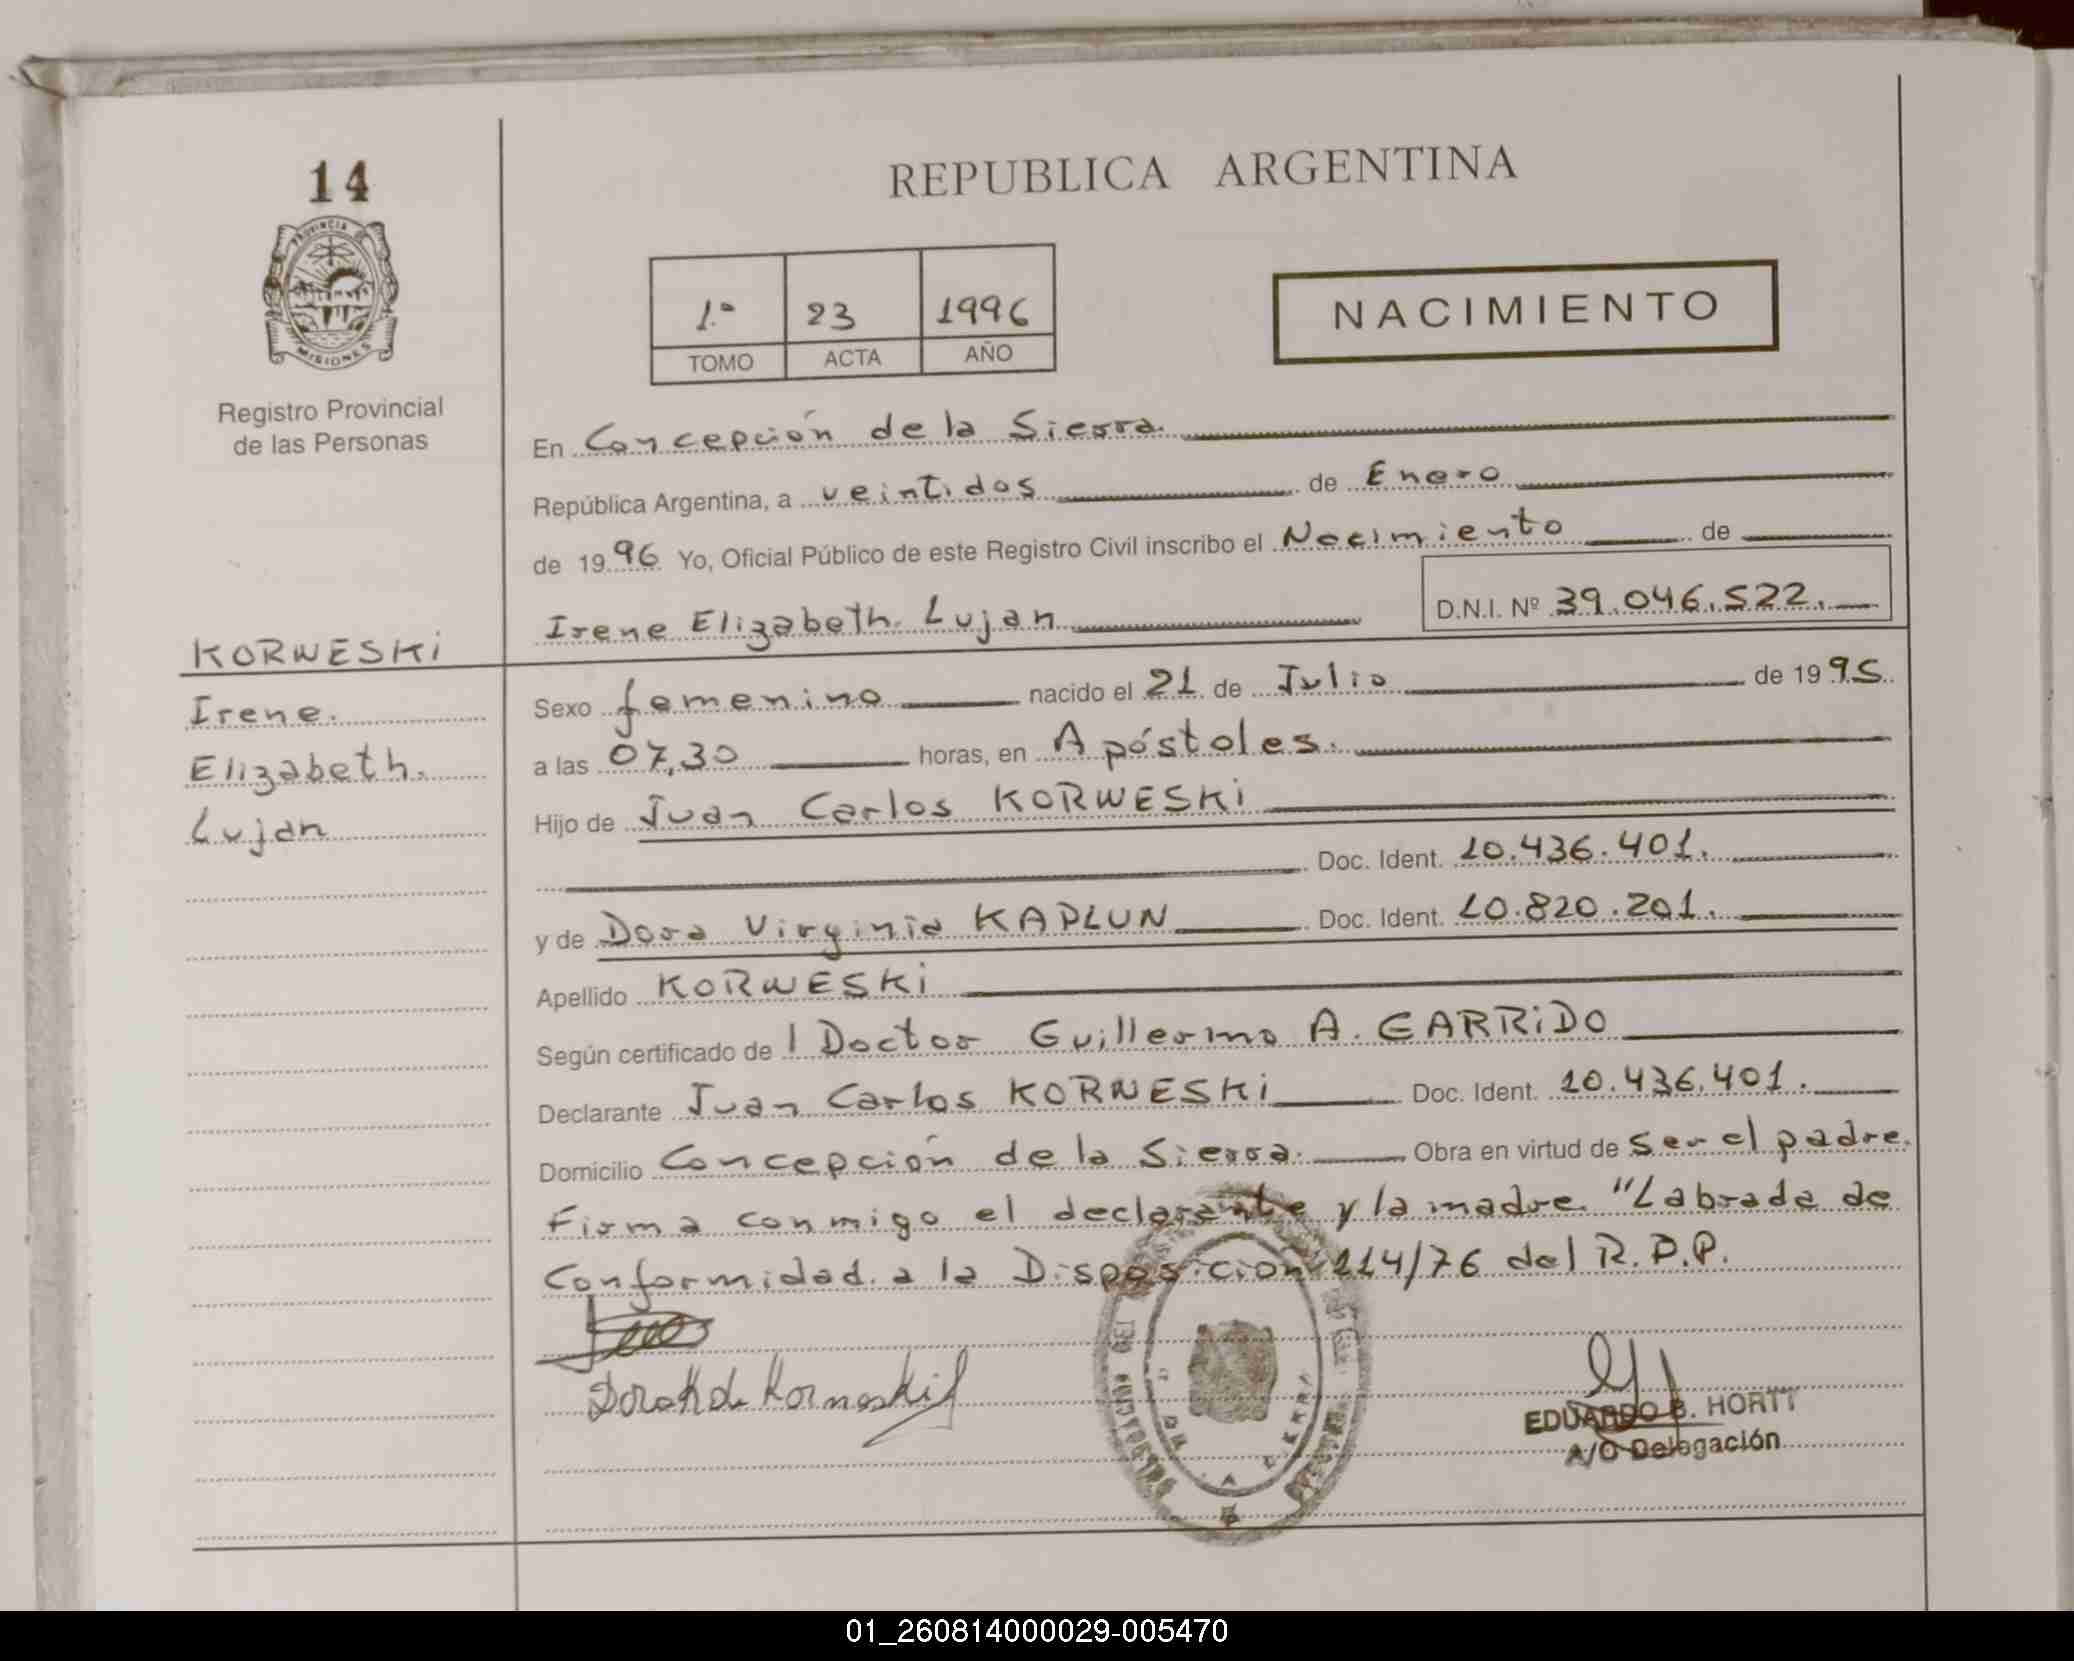 14
PROVINCIA DE
MISIONES
Registro Provincial
de las Personas
KORWESKI
Irene
Elizabeth
Lujan
REPUBLICA ARGENTINA
1º 23 1996
TOMO ACTA AÑO
NACIMIENTO
En Concepción de la Sierra.
República Argentina, a veintidos de Enero
de 1996 Yo, Oficial Público de este Registro Civil inscribo el Nacimiento de
Irene Elizabeth Lujan D.N.I. Nº 39.046.522.
Sexo femenino nacido el 21 de Julio de 1995
a las 07,30 horas, en Apóstoles.
Hijo de Juan Carlos KORWESKI
Doc. Ident. 10.436.401.
y de Dora Virginia KAPLUN Doc. Ident. 10.820.201.
Apellido KORWESKI
Según certificado de l Doctor Guillermo A. GARRIDO
Declarante Juan Carlos KORWESKI Doc. Ident. 10.436.401.
Domicilio Concepción de la Sierra. Obra en virtud de ser el padre.
Firma conmigo el declarante y la madre. "Labrada de
Conformidad a la Disposición 114/76 del R.P.P.
EDUARDO B. HORTT
A/O Delegación
01_260814000029-005470